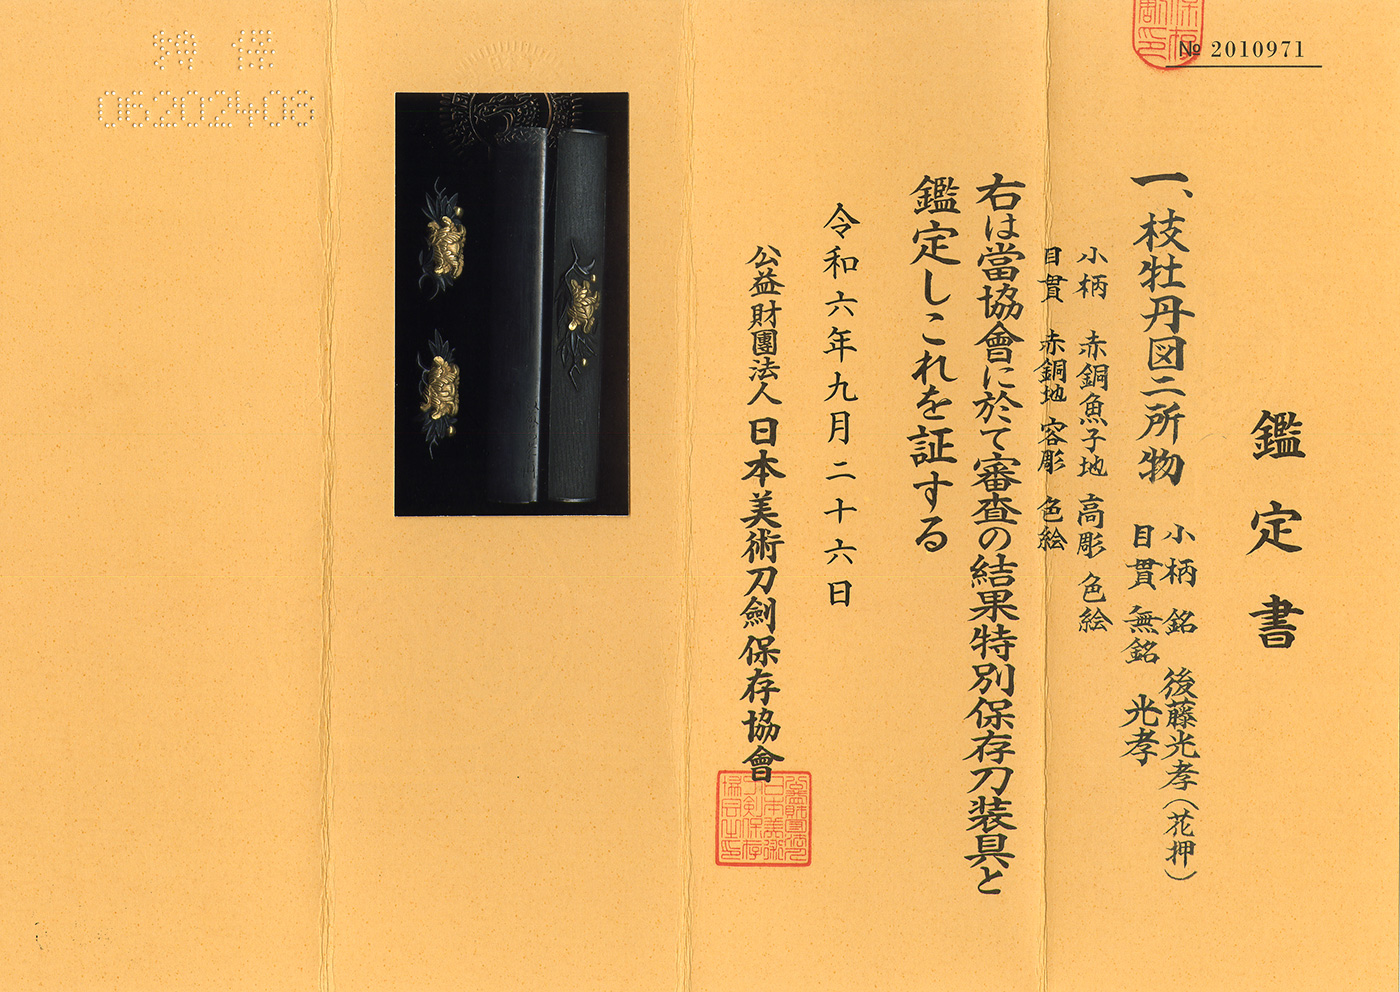 № 2010971
鑑定書
一、枝牡丹図二所物
小柄 銘 後藤光孝(花押)
目貫 無銘 光孝
小柄 赤銅魚子地 高彫 色絵
目貫 赤銅地 容彫 色絵
右は當協會に於て審査の結果特別保存刀装具と
鑑定しこれを証する
令和六年九月二十六日
公益財團法人 日本美術刀劍保存協會
06202408